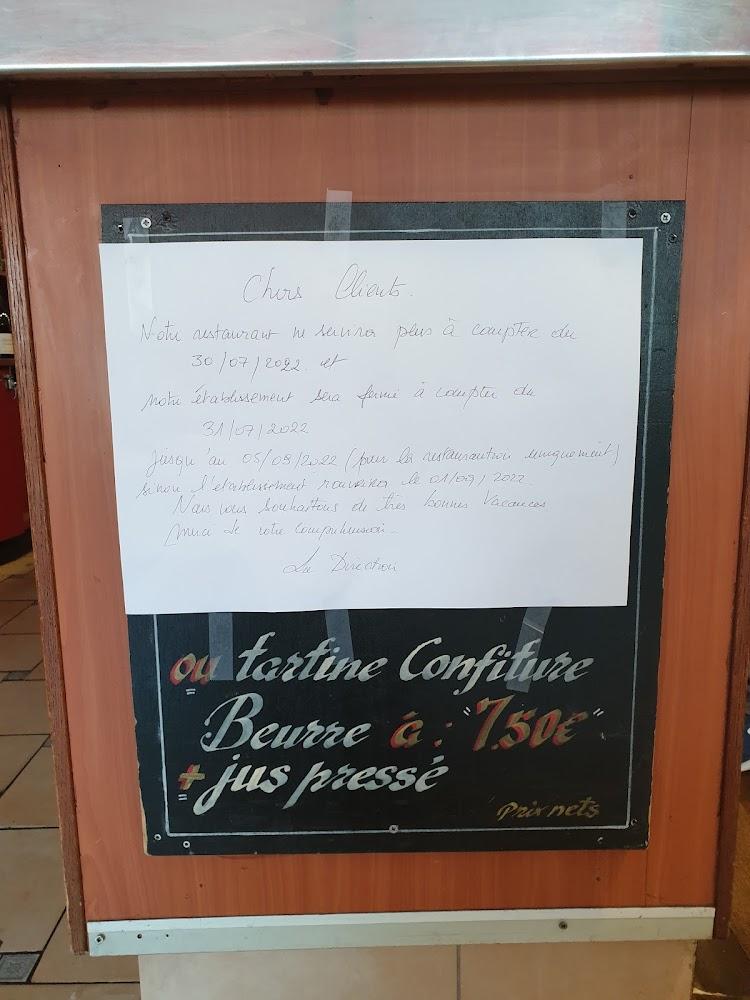 Chers Clients.
Notre restaurant ne servira plus à compter du
30/07/2022. et
notre établissement sera fermé à compter du
31/07/2022
jusqu'au 05/09/2022 (pour la restauration uniquement)
sinon l'établissement rouvrira le 01/09/2022.
Nous vous souhaitons de très bonnes Vacances.
Merci de votre compréhension.
La Direction
ou tartine Confiture
Beurre à : "7.50€"
+ jus pressé
Prix nets